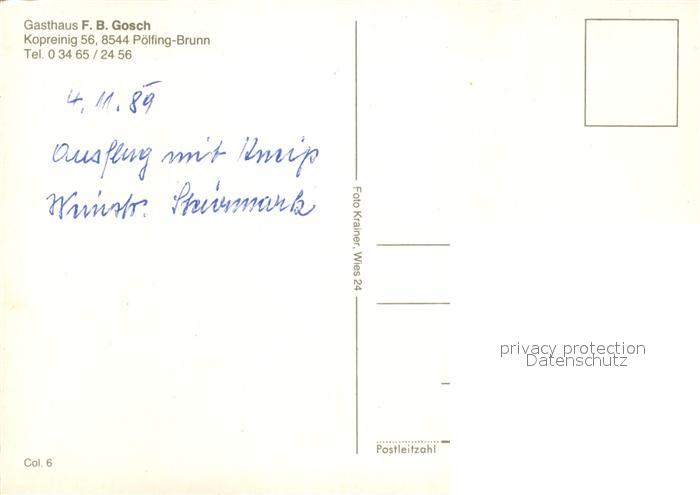 Gasthaus F. B. Gosch
Kopreinig 56, 8544 Pölfing-Brunn
Tel. 0 34 65 / 24 56
4. 11. 89
Ausflug mit Kneip
Weinstr. Steiermark
Foto Krainer, Wies 24
privacy protection
Datenschutz
Postleitzahl
Col. 6